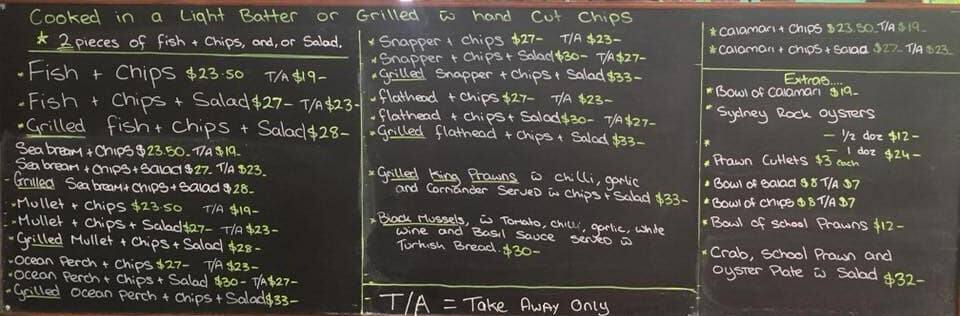 Cooked in a Light Batter or Grilled w hand Cut Chips
* 2 pieces of fish + Chips, and, or Salad.
- Fish + Chips $23.50 T/A $19-
- Fish + Chips + Salad $27- T/A $23-
- Grilled fish + Chips + Salad $28-
Sea bream + Chips $23.50- T/A $19-
Sea bream + Chips + Salad $27- T/A $23-
- Grilled Sea bream + Chips + Salad $28-
- Mullet + Chips $23.50 T/A $19-
- Mullet + Chips + Salad $27- T/A $23-
- Grilled Mullet + Chips + Salad $28-
- Ocean Perch + Chips $27- T/A $23-
- Ocean Perch + Chips + Salad $30- T/A $27-
- Grilled Ocean Perch + Chips + Salad $33-
* Snapper + Chips $27- T/A $23-
* Snapper + Chips + Salad $30- T/A $27-
* Grilled Snapper + Chips + Salad $33-
* flathead + Chips $27- T/A $23-
* flathead + Chips + Salad $30- T/A $27-
* Grilled flathead + Chips + Salad $33-
* Grilled King Prawns w chilli, garlic
and Corriander Served w Chips + Salad $33-
* Black Mussels, w Tomato, chilli, garlic, white
wine and Basil Sauce served w
Turkish Bread. $30-
T/A = Take Away Only
* Calamari + Chips $23.50 T/A $19-
* Calamari + Chips + Salad $27- T/A $23-
Extras....
* Bowl of Calamari $19-
* Sydney Rock Oysters
- 1/2 doz $12-
* - 1 doz $24-
* Prawn Cutlets $3 each
* Bowl of Salad $8 T/A $7
* Bowl of chips $8 T/A $7
* Bowl of School Prawns $12-
* Crab, School Prawn and
Oyster Plate w Salad $32-